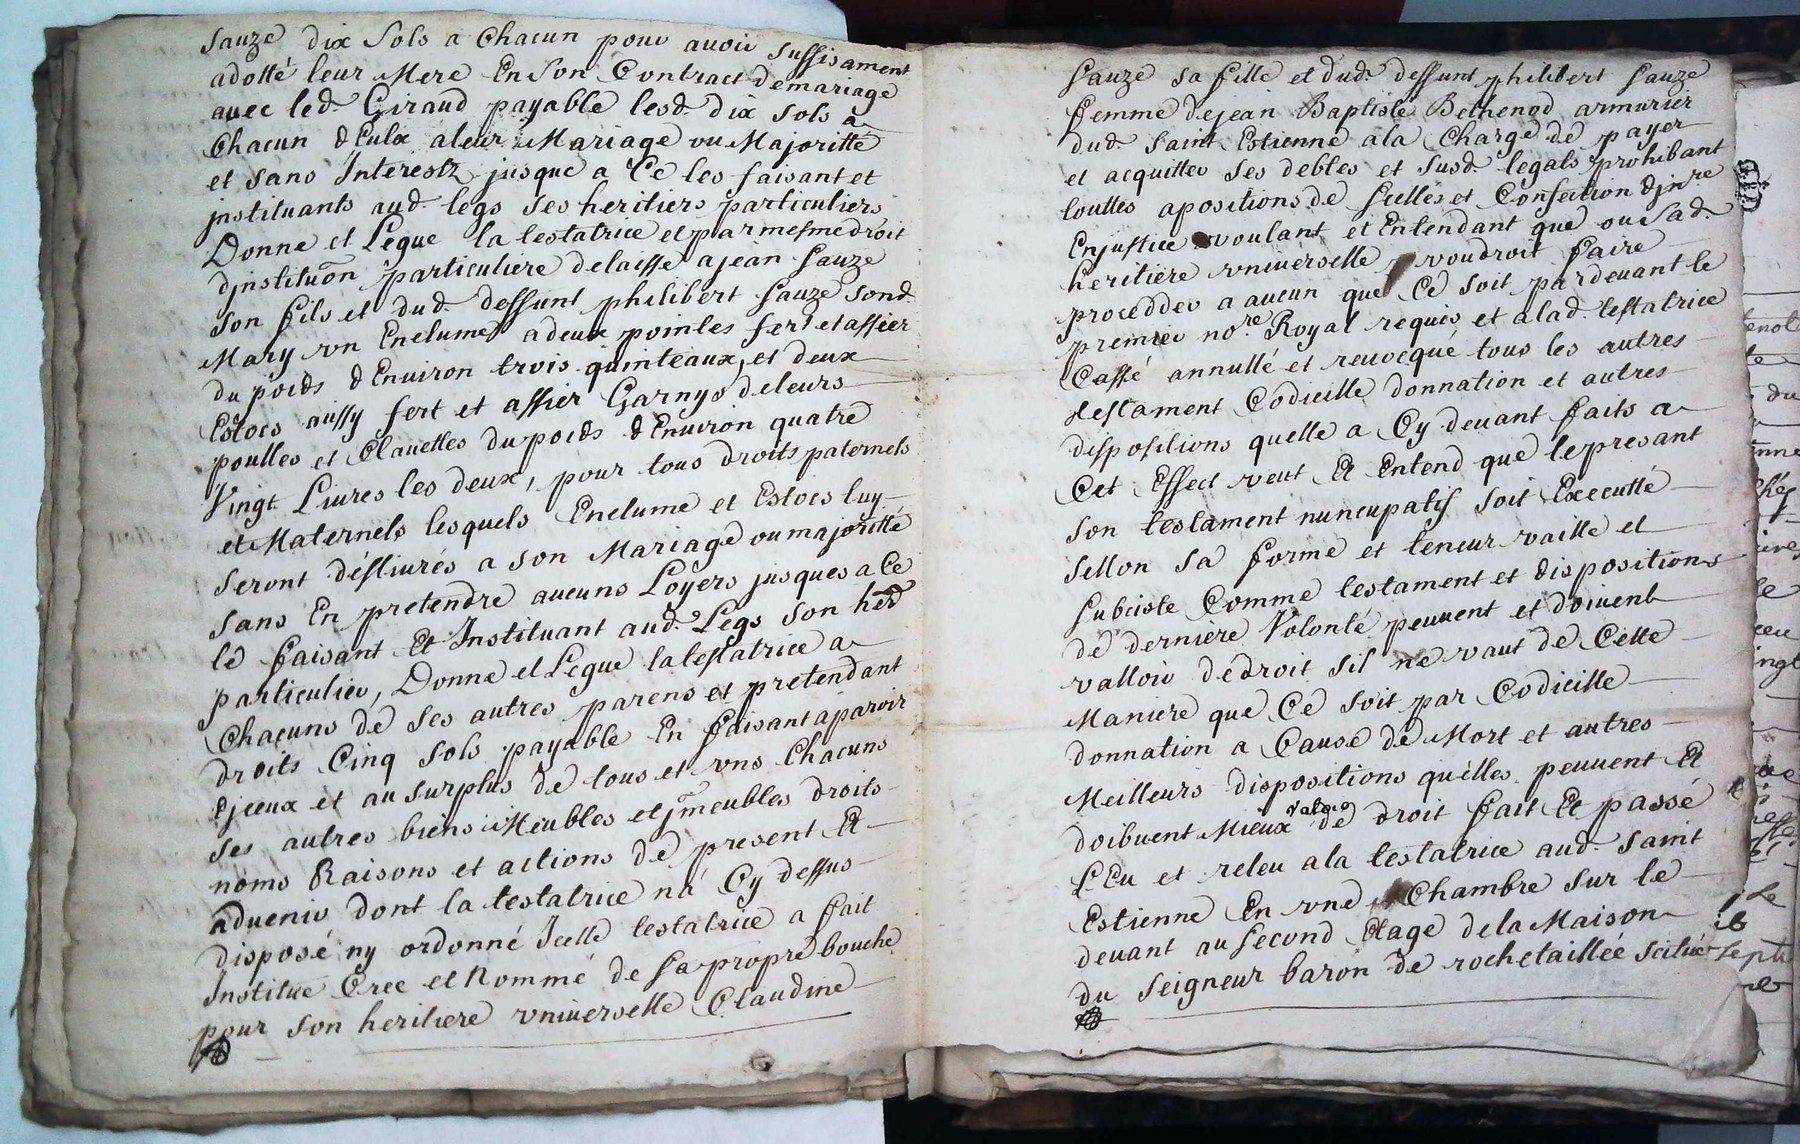 Sauze dix Sols a Chacun pour auoir suffisament
adotté leur Mere En Son Contract demariage
auec led. Giraud payable lesd. dix sols a
Chacun d'Eulx aleur Mariage ou Majoritté
et sans Interestz jusque a Ce les faisant et
jnstituants aud. legs ses heritiers particuliers
Donne et Legue la testatrice et par mesme droit
djnstituõn particuliere delaisse ajean Sauze
son fils et dud. deffunt philibert Sauze sond.
Mary vn Enclume adeux pointes fert et assier
du poids d'Enuiron trois quinteaux, et deux
Estocs aussy fert et assier Garnys deleurs
poulles et Clauettes du poids d'Enuiron quatre
Vingt Liures les deux, pour tous droits paternels
et Maternels lesquels Enclume et Estocs luy
seront désliurés a son Mariage ou majoritté
sans En pretendre aucuns Loyers jusques a Ce
le faisant Et Instituant aud. Legs son herd
particulier, Donne et Legue la testatrice a
Chacuns de ses autres parens et pretendant
droits Cinq sols payable En faisant aparoir
Ejceux et au surplus de tous et vns Chacuns
ses autres biens Meubles et jmeubles droits
noms Raisons et actions de present Et
aduenir dont la testatrice na Cy dessus
disposé ny ordonné Icelle testatrice a fait
Institue Cree et Nommé de sa propre bouche
pour son heritiere vniuerselle Claudine
Sauze sa fille et dud. deffunt philibert Sauze
femme dejean Baptiste Bethenod armurier
dud. Saint Estienne ala Charge de payer
et acquitter ses debtes et susd. legats prohibant
touttes apositions de scelles et Confection djnre
Enjustice voulant et Entendant que ou sad.
heritiere vniuerselle voudroit faire
procedder a aucun que Ce soit pardeuant le
premier nore Royal requis et alad. testatrice
Cassé annullé et reuocqué tous les autres
testament Codicille donnation et autres
dispositions quelle a Cy deuant faits a
Cet Effect veut Et Entend que lepresant
son testament nuncupatif soit Executté
sellon sa forme et teneur vaille et
subciste Comme testament et dispositions
de derniere Volonté peuuent et doiuent
valloir dedroit sil ne vaut de Cette
Maniere que Ce soit par Codicille
donnation a Cause de Mort et autres
Meilleurs dispositions qu'elles peuuent Et
doibuent Mieux valoir de droit fait Et passé
Leu et releu ala testatrice aud. Saint
Estienne En vne Chambre sur le
deuant au second Etage de la Maison
du seigneur baron de rochetaillée scitué